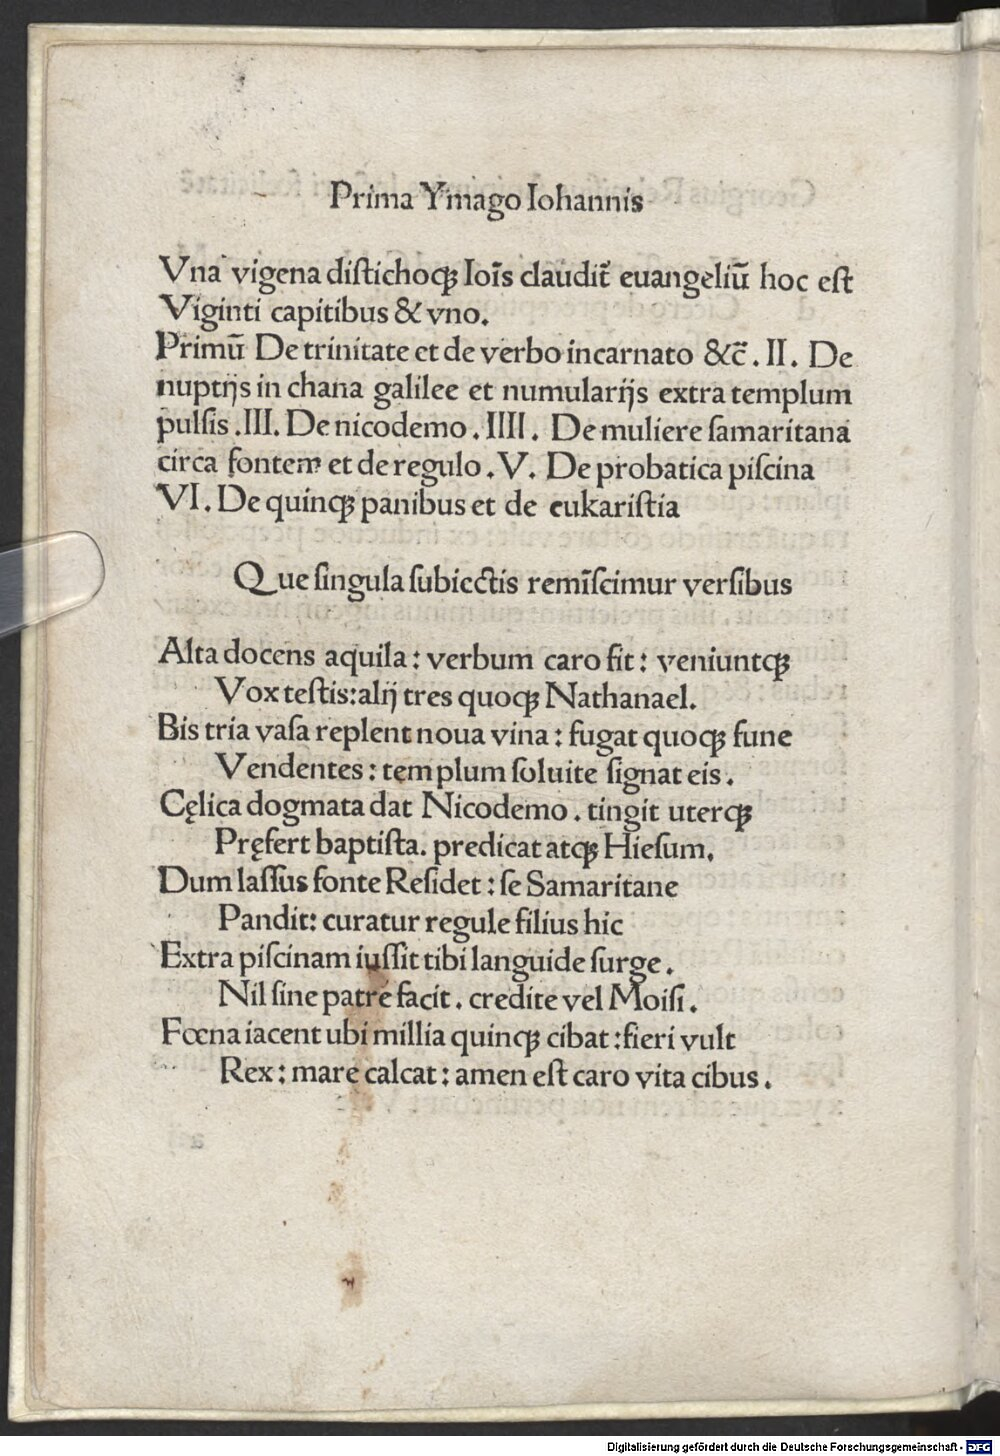 Prima Ymago Iohannis
Vna vigena diſtichoqꝫ Ioīs claudit᷑ euangeliū hoc eſt
Viginti capitibus & vno.
Primū De trinitate et de verbo incarnato &c̄. II. De
nuptijs in chana galilee et numularijs extra templum
pulſis .III. De nicodemo. IIII. De muliere ſamaritana
circa fontem et de regulo. V. De probatica piſcina
VI. De quinqꝫ panibus et de eukariſtia
Que ſingula ſubiectis remīſcimur verſibus
Alta docens aquila: verbum caro fit: veniuntqꝫ
Vox teſtis: alij tres quoqꝫ Nathanael.
Bis tria vaſa replent noua vina: fugat quoqꝫ fune
Vendentes: templum ſoluite ſignat eis.
Cęlica dogmata dat Nicodemo. tingit uterqꝫ
Pręfert baptiſta. predicat atqꝫ Hieſum.
Dum laſſus fonte Reſidet: ſe Samaritane
Pandit: curatur regule filius hic
Extra piſcinam iuſſit tibi languide ſurge.
Nil ſine patre facit. credite vel Moiſi.
Fœna iacent ubi millia quinqꝫ cibat: fieri vult
Rex: mare calcat: amen eſt caro vita cibus.
Digitalisierung gefördert durch die Deutsche Forschungsgemeinschaft - DFG